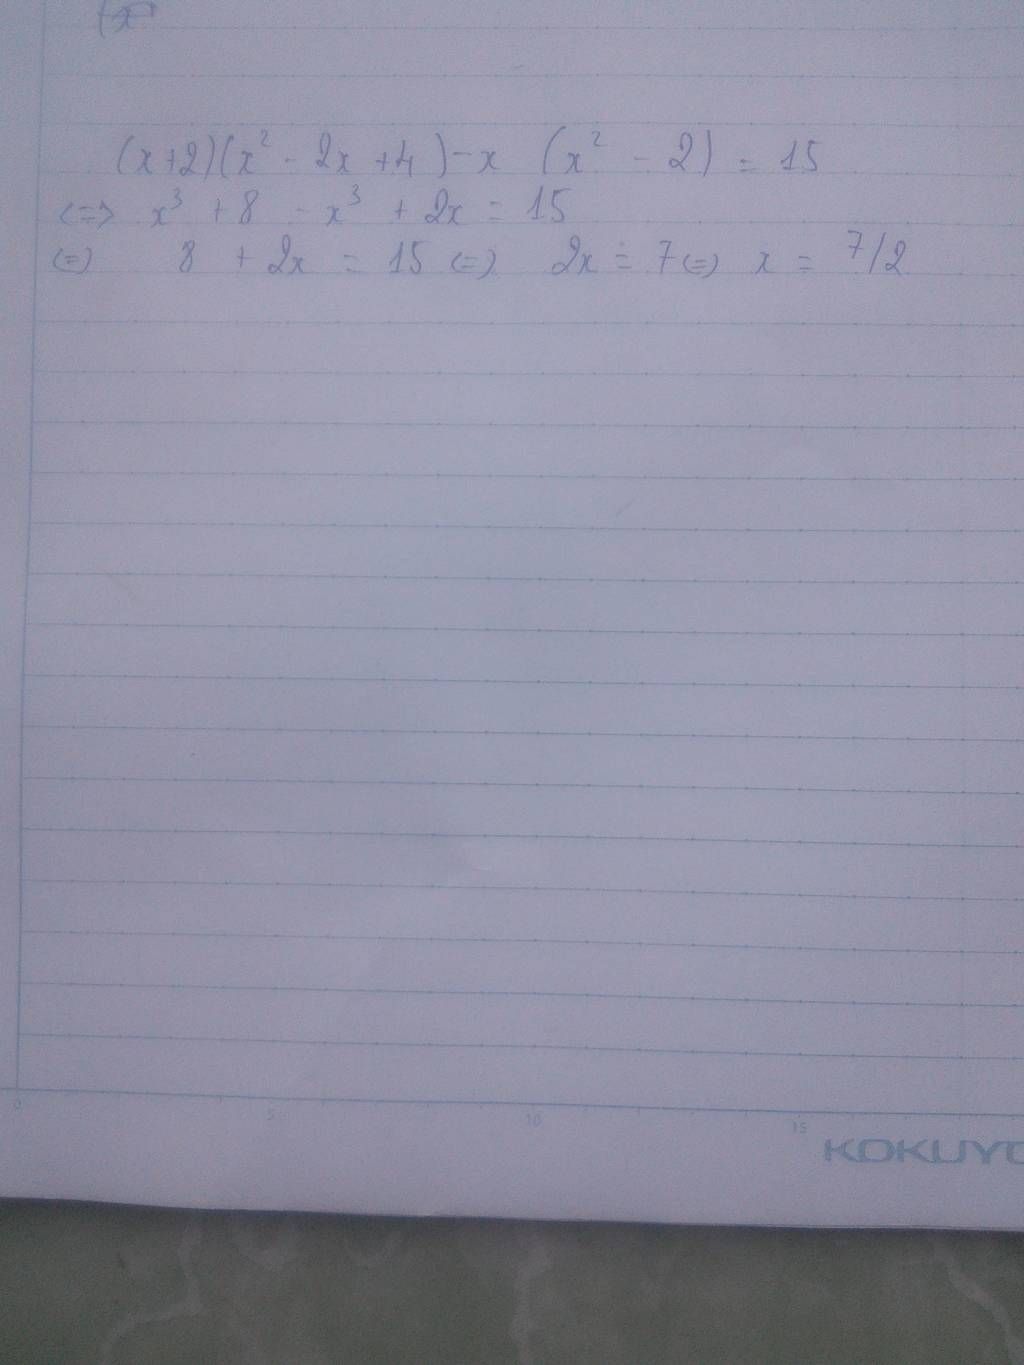 (x+2)(x² - 2x +4) - x (x² - 2) = 15
<=> x³ + 8 - x³ + 2x = 15
<=> 8 + 2x = 15 <=> 2x = 7 <=> x = 7/2
0 5 10 15
KOKUYO